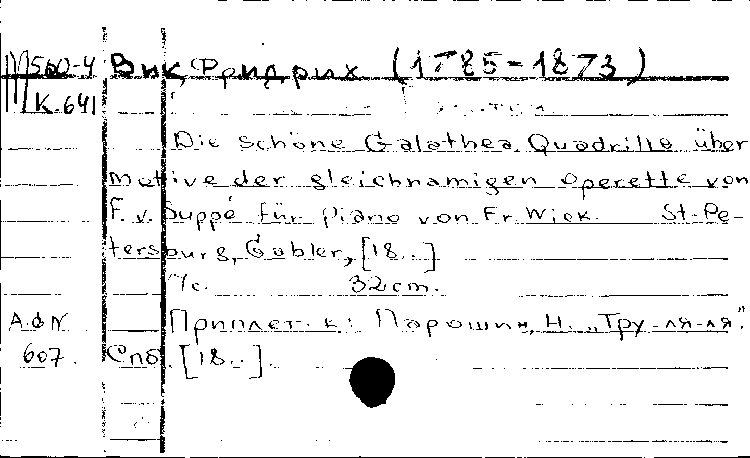 М560-4 Вик, Фридрих (1785-1873)
К.641
Die schöne Galathea. Quadrille über
motive der gleichnamigen operette von
F. v. Suppé für piano von Fr. Wiek. St.-Pe-
tersburg, Gabler, [18..]
7/с. 32 cm.
А.ф N Приплет. к: Парошин, Н. „Тру-ля-ля".
607. Спб. [18..].